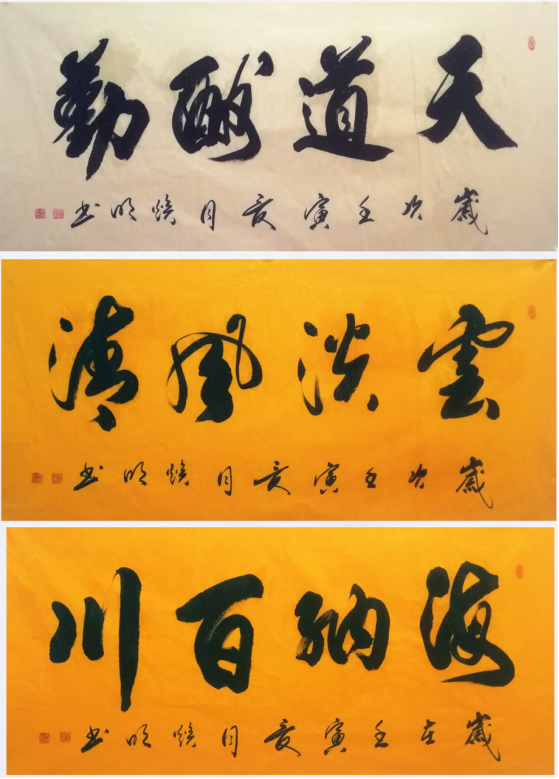 天道酬勤
歲次壬寅亥月煥明书
雲淡風清
歲次壬寅亥月煥明书
海納百川
歲在壬寅亥月煥明书